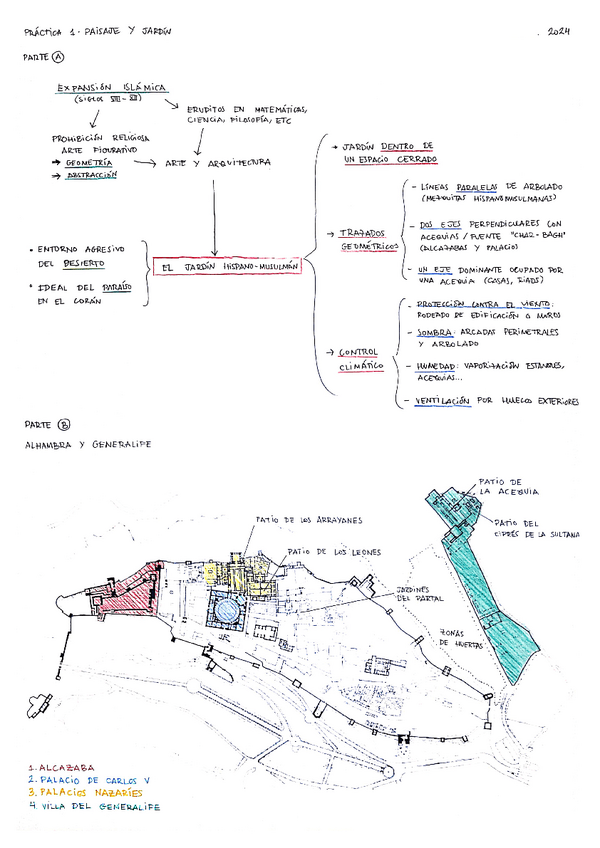 PRÁCTICA 1 - PAISAJE Y JARDÍN
2024
PARTE A
EXPANSIÓN ISLÁMICA
(SIGLOS VII-XV)
ERUDITOS EN MATEMÁTICAS,
CIENCIA, FILOSOFÍA, ETC
PROHIBICIÓN RELIGIOSA
ARTE FIGURATIVO
→ GEOMETRÍA
→ ABSTRACCIÓN
ARTE Y ARQUITECTURA
• ENTORNO AGRESIVO
DEL DESIERTO
• IDEAL DEL PARAÍSO
EN EL CORÁN
EL JARDÍN HISPANO-MUSULMÁN
→ JARDÍN DENTRO DE
UN ESPACIO CERRADO
→ TRAZADOS
GEOMÉTRICOS
- LÍNEAS PARALELAS DE ARBOLADO
(MEZQUITAS HISPANOMUSULMANAS)
- DOS EJES PERPENDICULARES CON
ACEQUIAS / FUENTE "CHAR-BAGH"
(ALCAZABAS Y PALACIO)
- UN EJE DOMINANTE OCUPADO POR
UNA ACEQUIA (CASAS, RIADS)
→ CONTROL
CLIMÁTICO
- PROTECCIÓN CONTRA EL VIENTO:
RODEADO DE EDIFICACIÓN O MUROS
- SOMBRA: ARCADAS PERIMETRALES
Y ARBOLADO
- HUMEDAD: VAPORIZACIÓN ESTANQUES,
ACEQUIAS...
- VENTILACIÓN POR HUECOS EXTERIORES
PARTE B
ALHAMBRA Y GENERALIFE
PATIO DE
LA ACEQUIA
PATIO DEL
CIPRÉS DE LA SULTANA
PATIO DE LOS ARRAYANES
PATIO DE LOS LEONES
JARDINES
DEL PARTAL
ZONAS
DE HUERTAS
1. ALCAZABA
2. PALACIO DE CARLOS V
3. PALACIOS NAZARÍES
4. VILLA DEL GENERALIFE